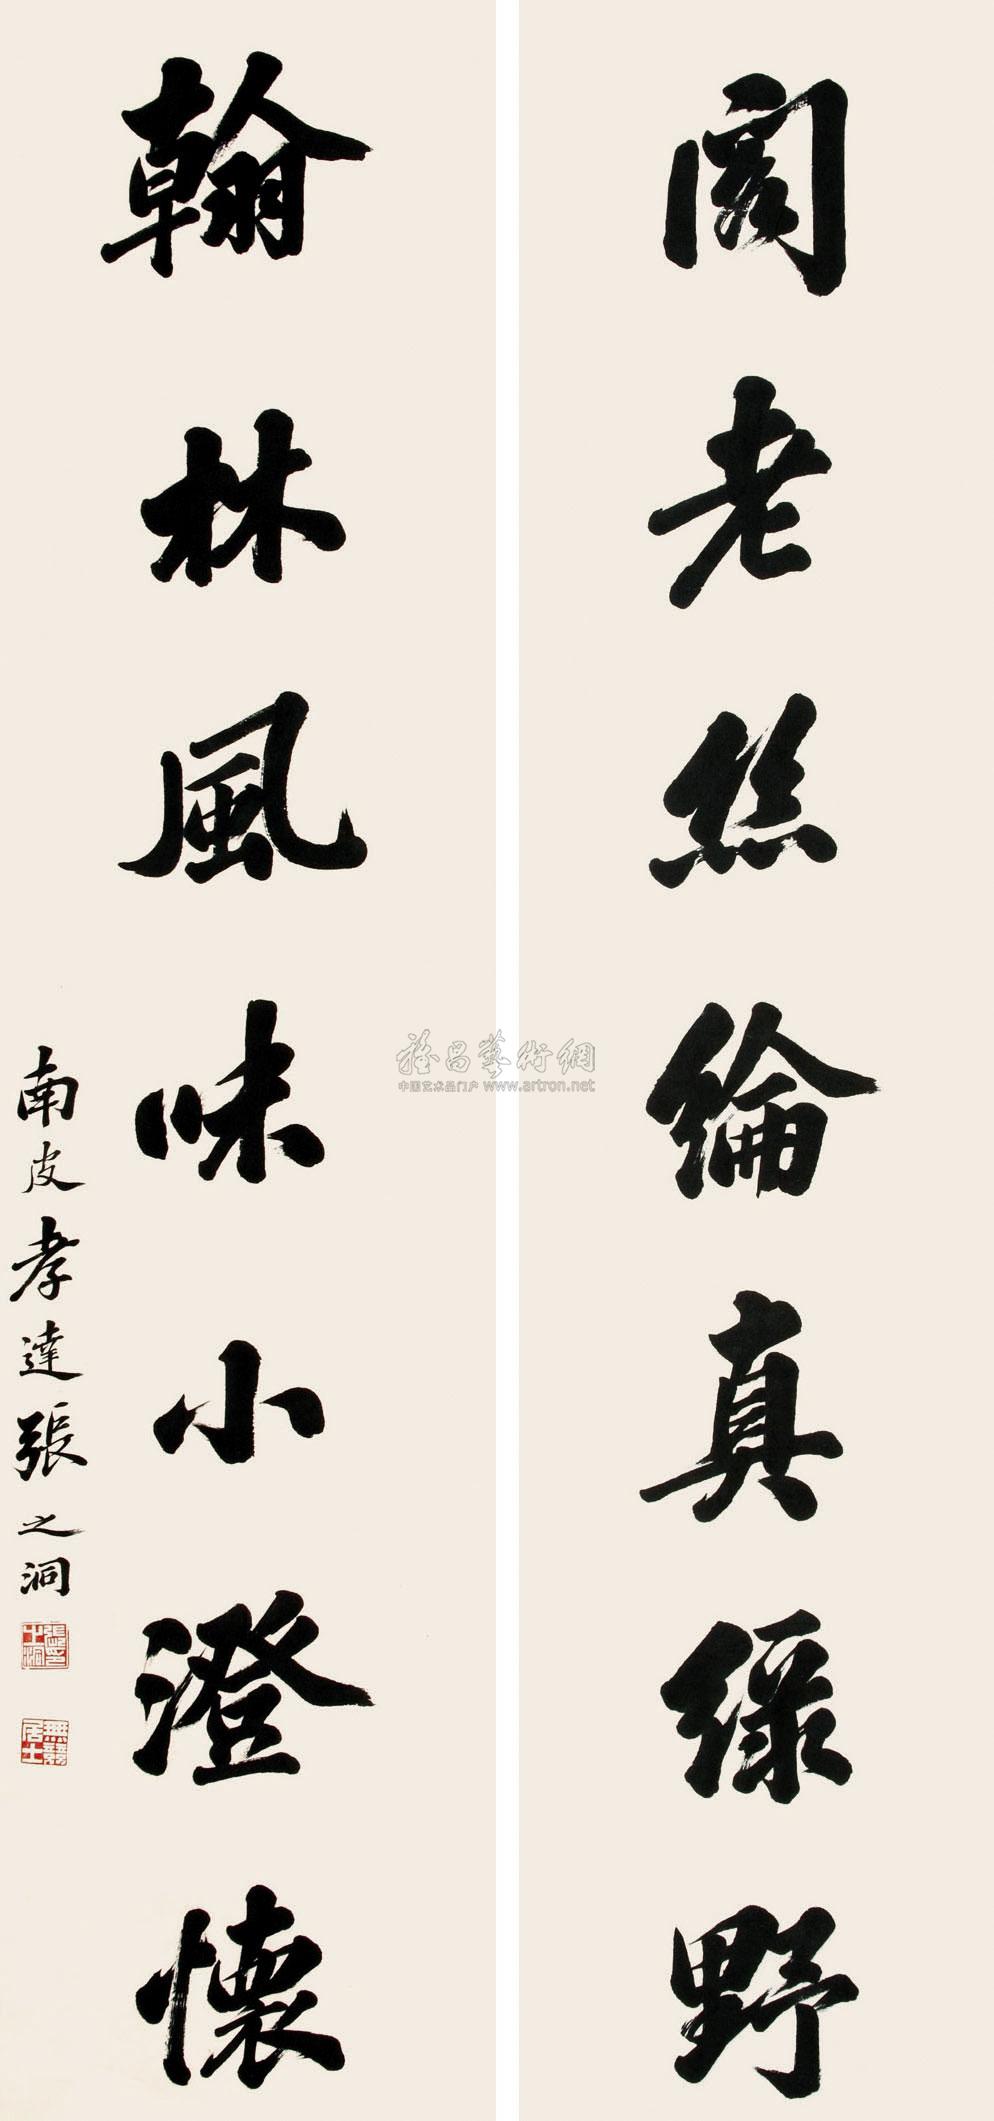 閣老絲綸真綠野
翰林風味小澄懷
南皮孝達張之洞
張之洞
無競居士
雅昌藝術網
中国艺术品门户 www.artron.net